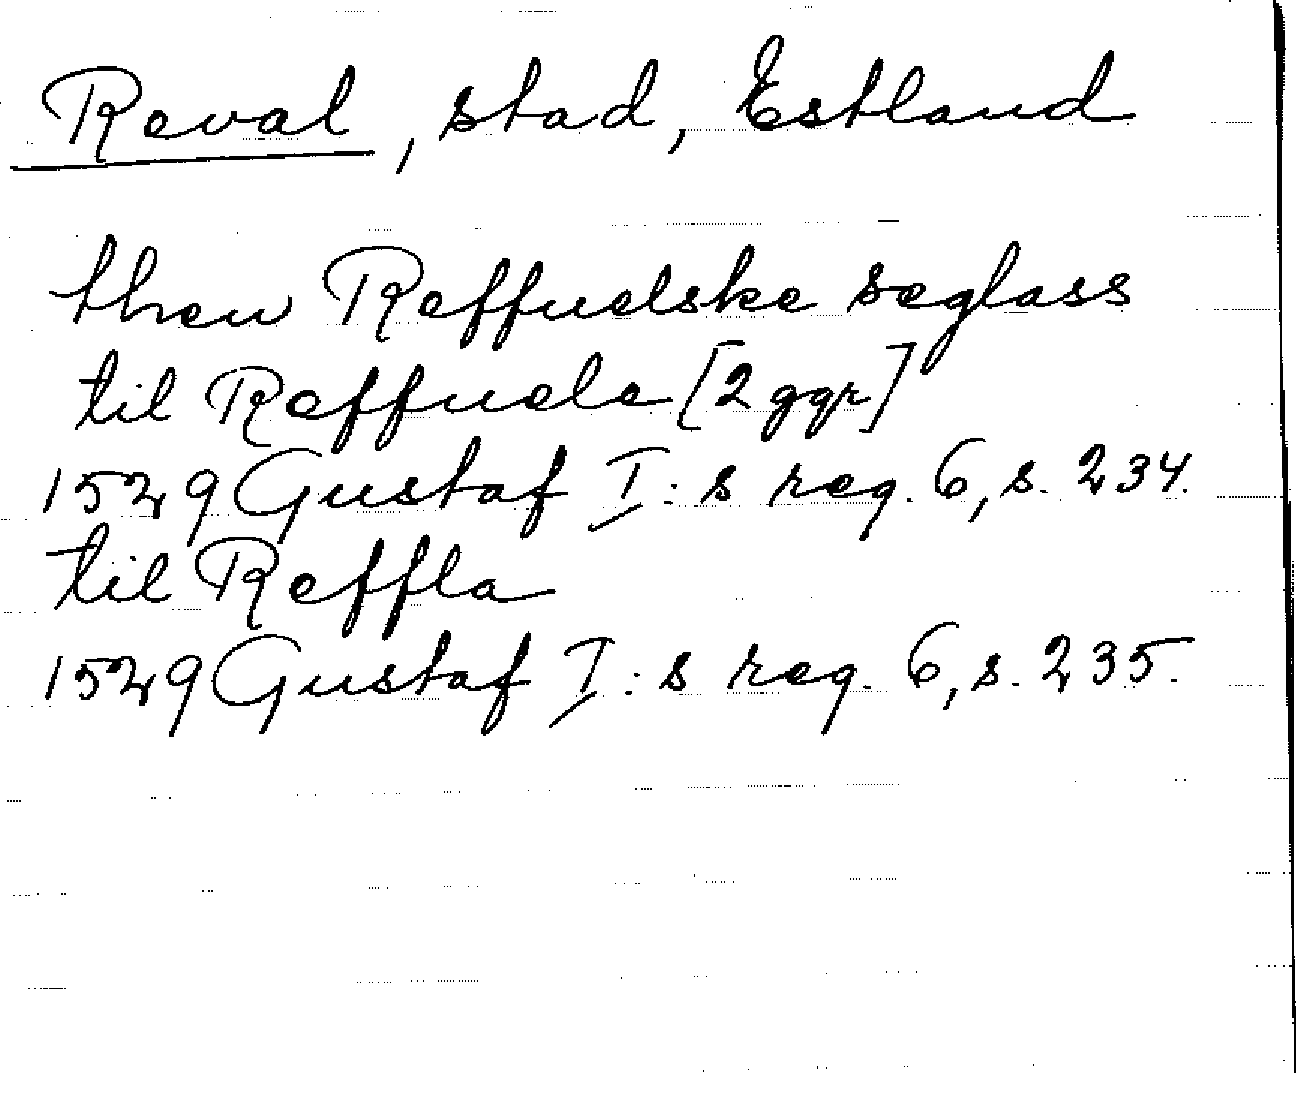 Reval, stad, Estland
then Reffuelske seglass
til Reffuele [2 ggr]
1529 Gustaf I:s reg. 6, s. 234.
til Reffla
1529 Gustaf I:s reg. 6, s. 235.